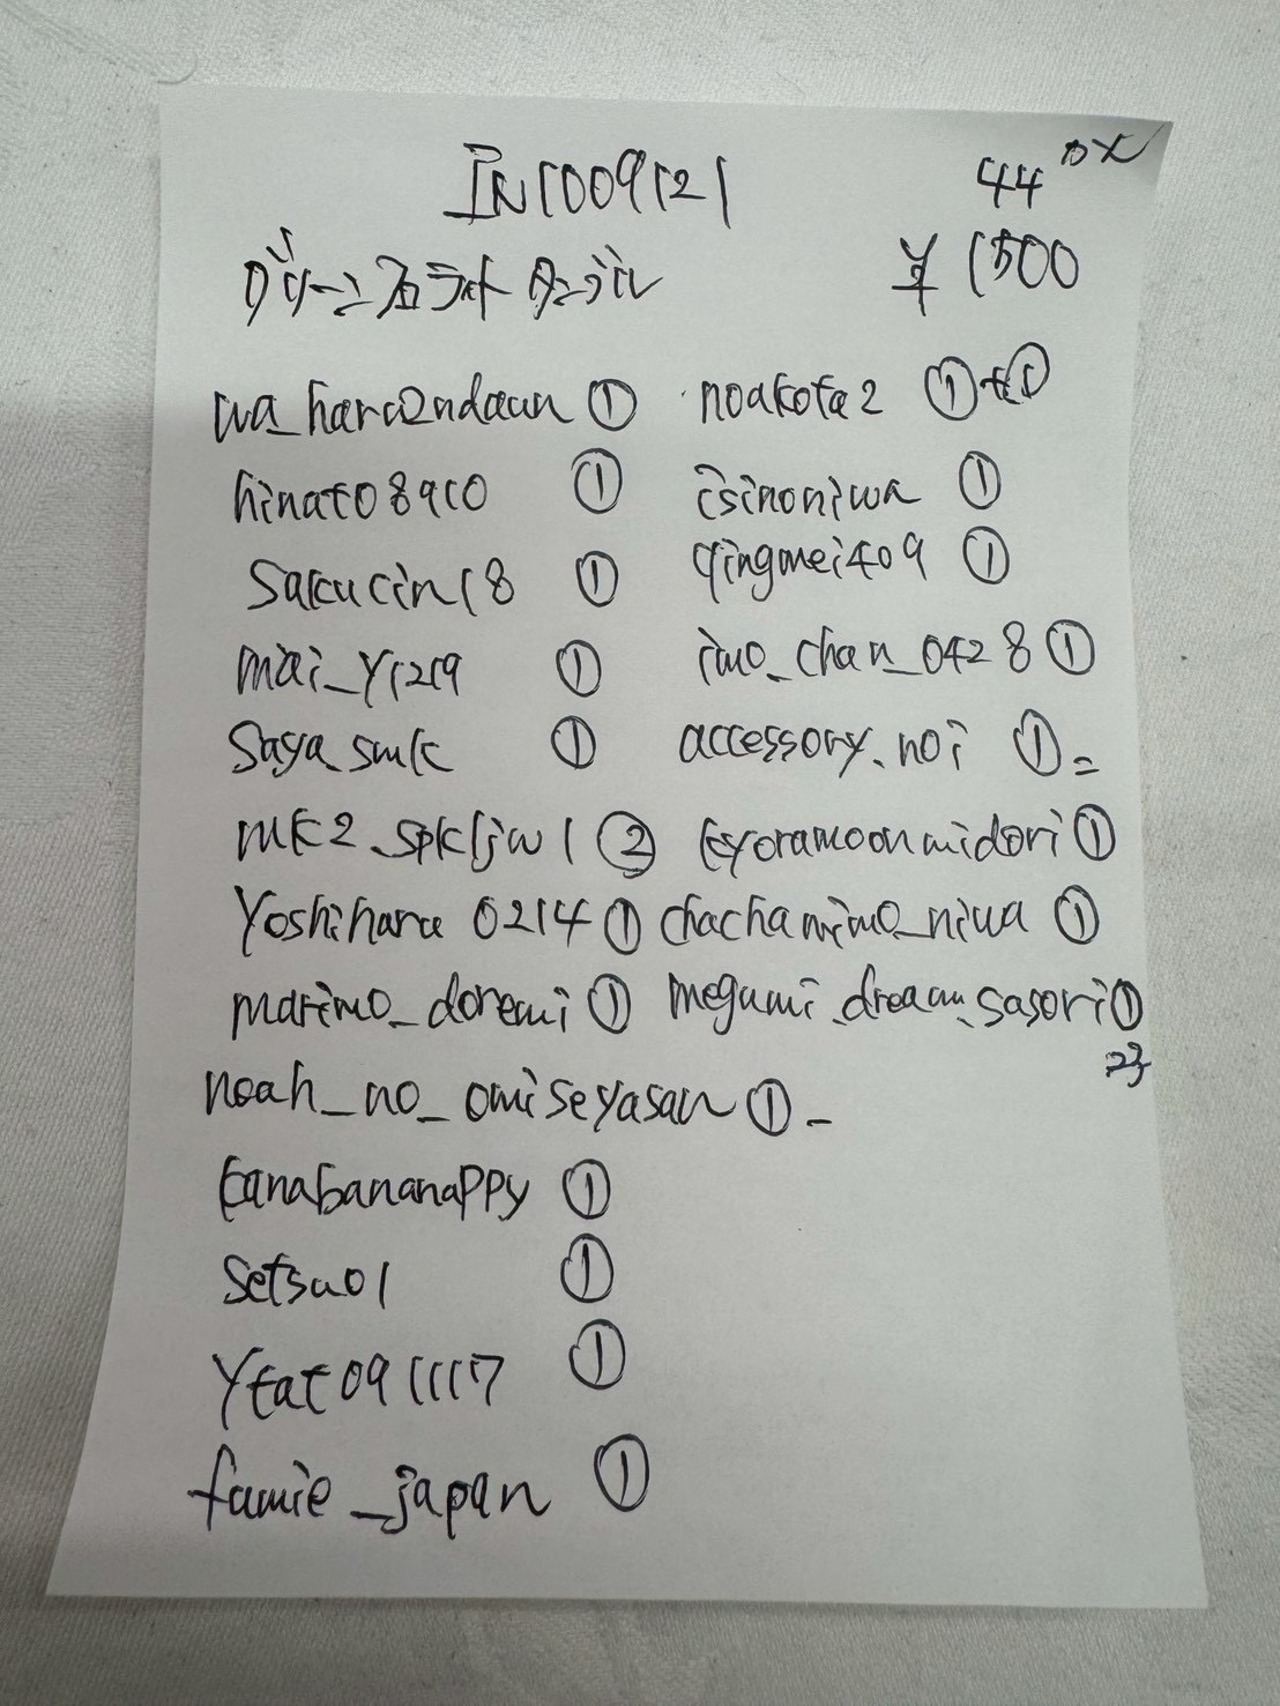 IN1009121
44
¥1500
グリーンフローライト タンブル
wa_haru2ndawn ①
hinat08910 ①
sakucin18 ①
mai_y1219 ①
saya_smk ①
mk2_spkljw1 ②
Yoshiharu 0214 ①
marimo_doremi ①
noah_no_omiseyasan ① -
kanabananappy ①
setsuo1 ①
ytat091117 ①
famie_japan ①
noakota2 ①+①
isinoniwa ①
qingmei409 ①
imo_chan_0428 ①
accessory.noi ① =
kyoramoonmidori ①
chachamimo_niwa ①
megumi_dream_sasori ①
23